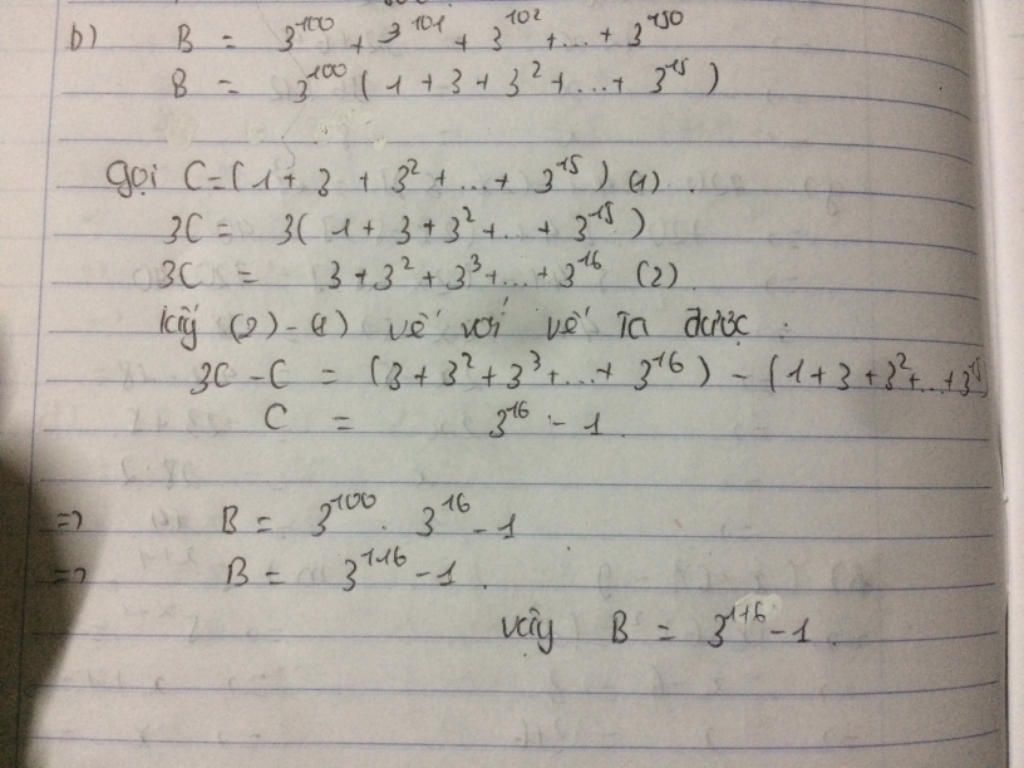 b) B = 3^100 + 3^101 + 3^102 + ... + 3^150
B = 3^100 ( 1 + 3 + 3^2 + ... + 3^15 )
Gọi C = ( 1 + 3 + 3^2 + ... + 3^15 ) (1) .
3C = 3( 1 + 3 + 3^2 + ... + 3^15 )
3C = 3 + 3^2 + 3^3 + ... + 3^16 (2)
Lấy (2) - (1) vế với vế ta được :
3C - C = (3 + 3^2 + 3^3 + ... + 3^16 ) - (1 + 3 + 3^2 + ... + 3^15)
C = 3^16 - 1
=> B = 3^100 . 3^16 - 1
=> B = 3^116 - 1 .
Vậy B = 3^116 - 1 .